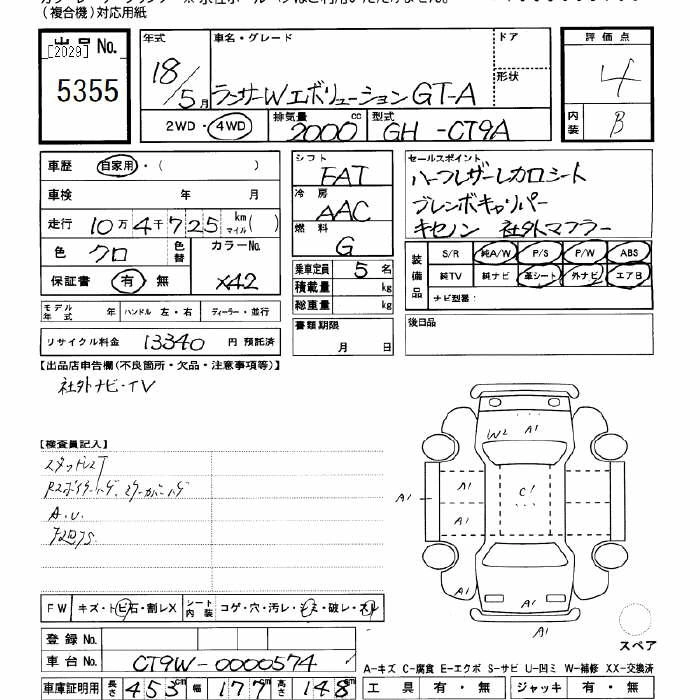 (複合機)対応用紙
出品No.
[2029]
5355
年式
18/5月
車名・グレード
ランサーWエボリューション GT-A
ドア
形状
評価点
4
内装
B
2WD・4WD
排気量
2000cc
型式
GH-CT9A
車歴
自家用・( )
車検 年 月
走行
10万4千725 km マイル( )
色
クロ
色替
カラーNo.
X42
保証書
有・無
シフト
FAT
冷房
AAC
燃料
G
乗車定員 5名
積載量 kg
総重量 kg
書類期限
月 日
セールスポイント
ハーフレザーレカロシート
ブレンボキャリパー
キセノン 社外マフラー
装備品
S/R 純A/W P/S P/W ABS
純TV 純ナビ 革シート 外ナビ エアB
ナビ型番:
後日品
モデル年式 年 ハンドル 左・右 ディーラー・並行
リサイクル料金 13340 円 預託済
【出品店申告欄(不良箇所・欠品・注意事項等)】
社外ナビ・TV
【検査員記入】
A.U.
W2 A1
A1 C1
A1 A1 A1
A1
A1
FW キズ・トビ石・割レX
シート内装 コゲ・穴・汚レ・シミ・破レ・スレ
登録No.
車台No. CT9W-0000574
車庫証明用 長さ 453cm 幅 177cm 高さ 148cm
スペア
A-キズ C-腐食 E-エクボ S-サビ U-凹ミ W-補修 XX-交換済
工具 有・無 ジャッキ 有・無